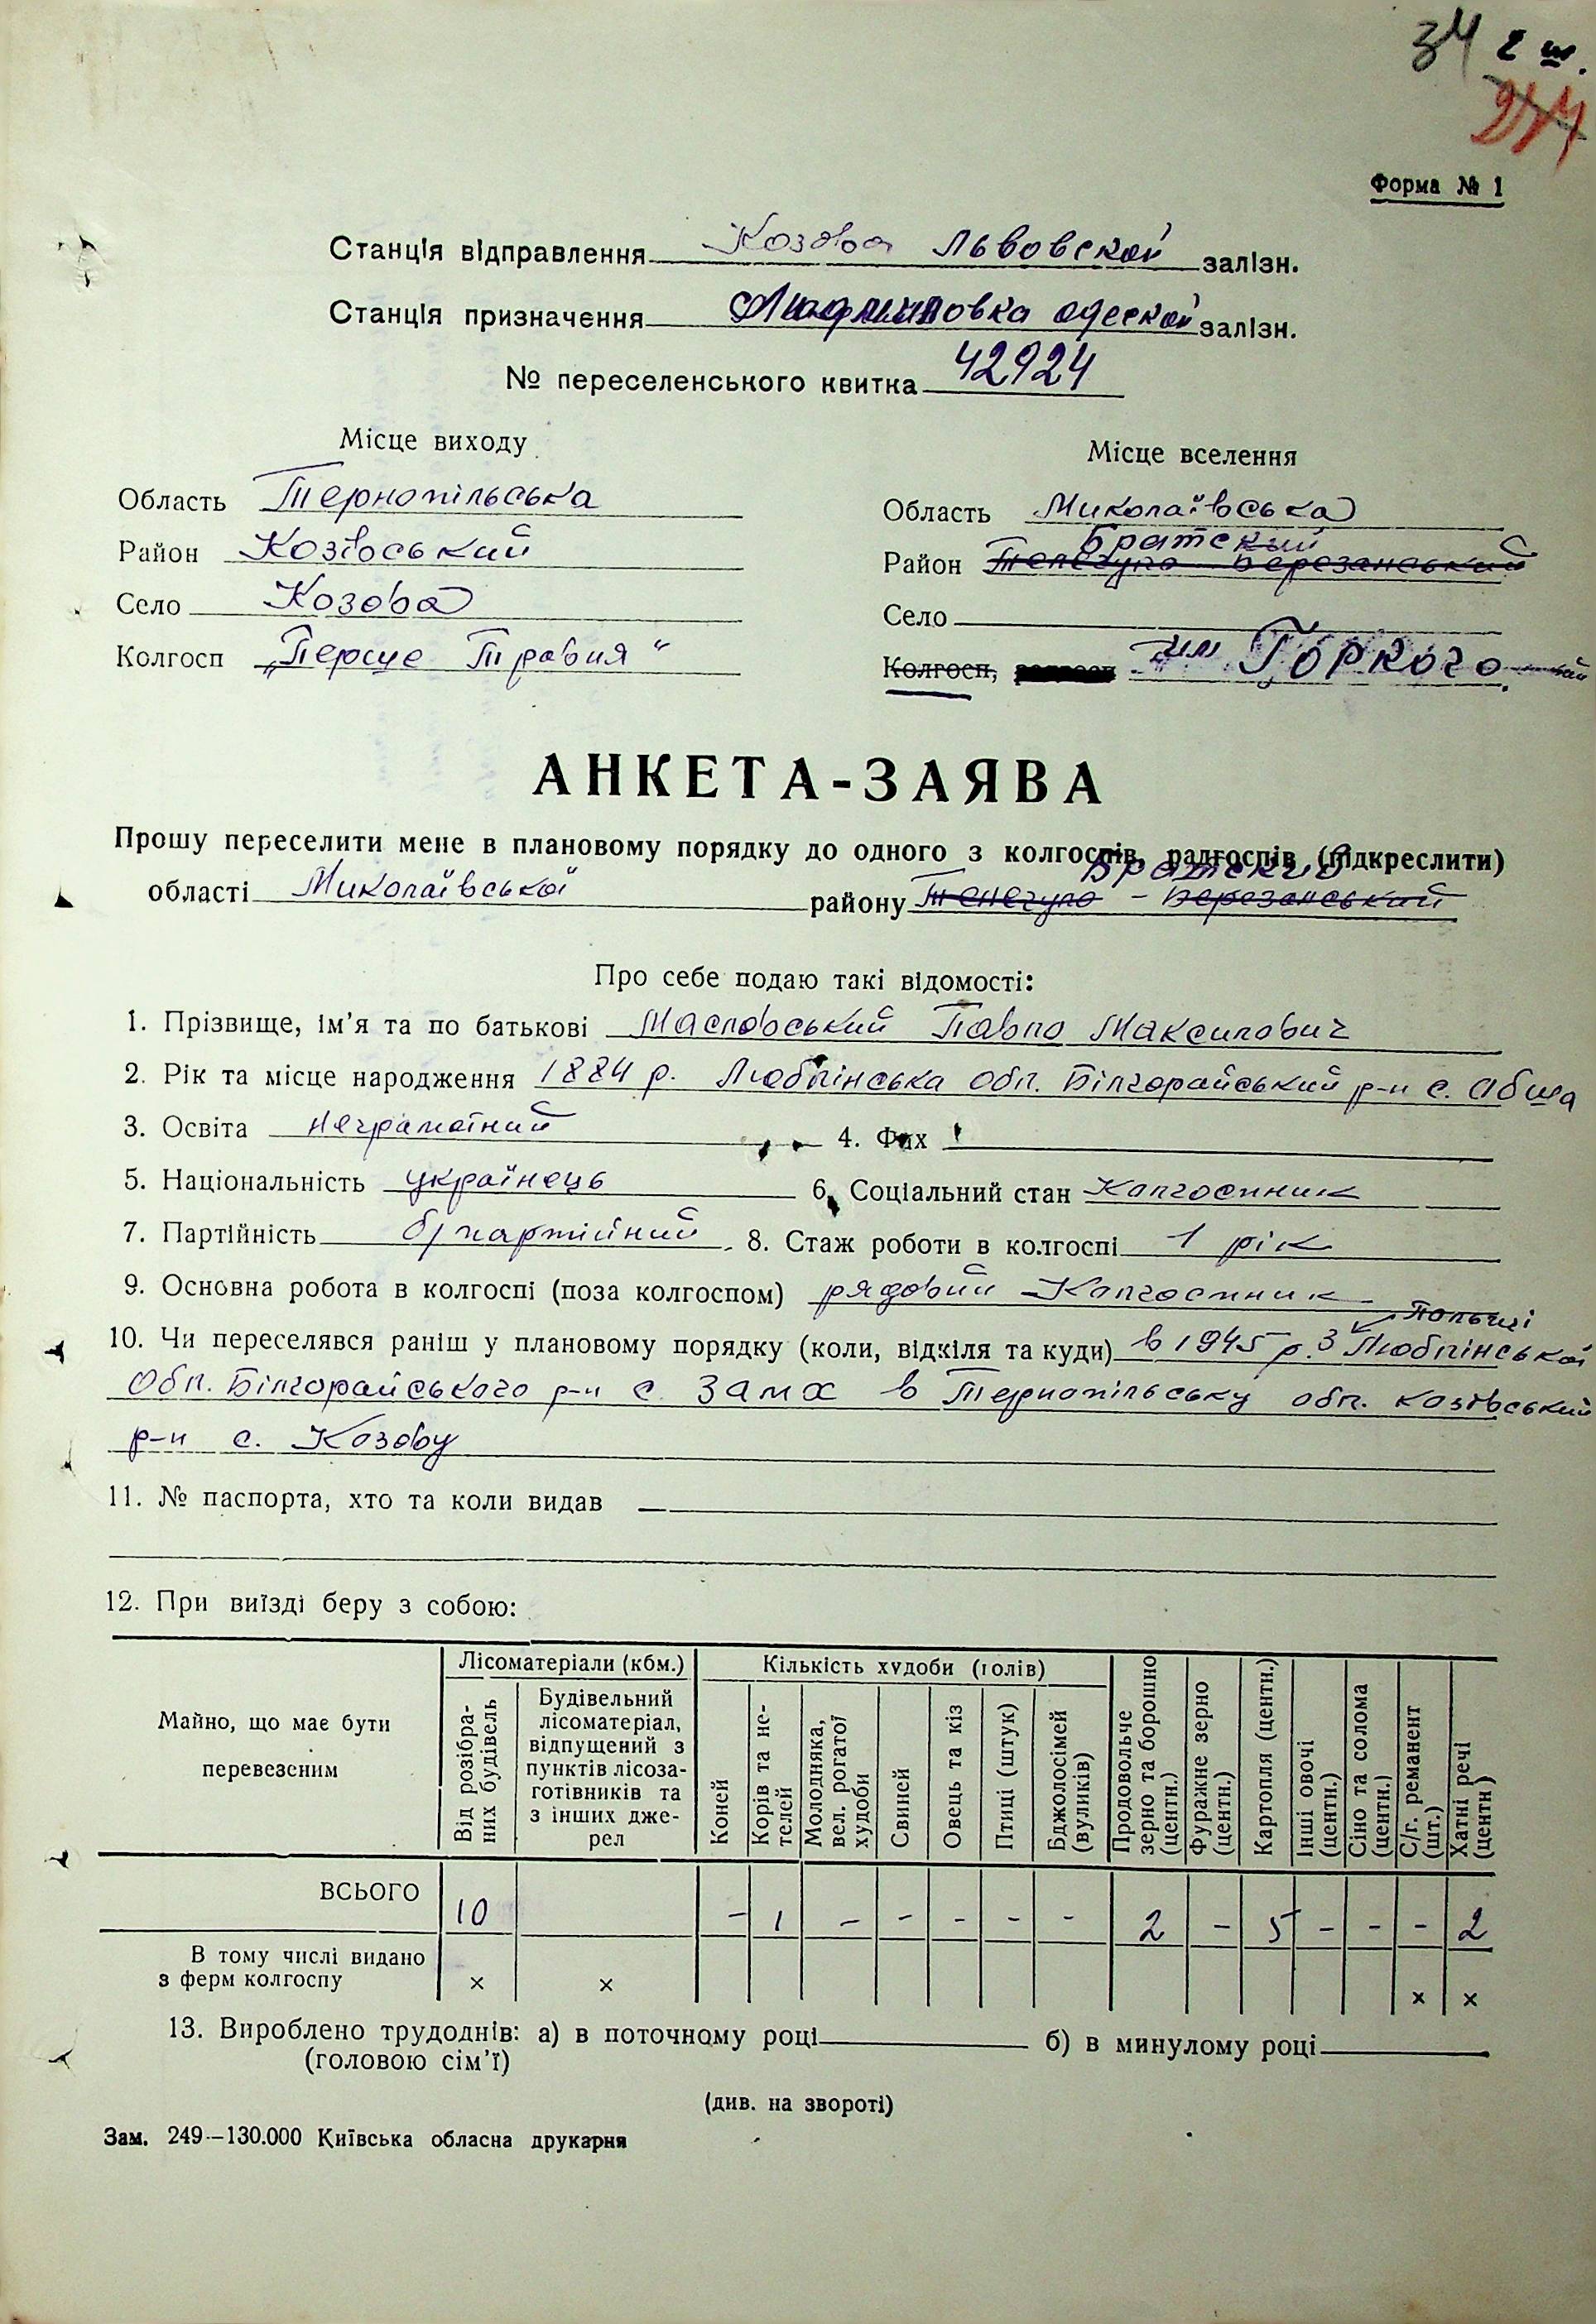 34
2 ш.
Форма № 1
Станція відправлення Козова Львовской залізн.
Станція призначення одеской залізн.
№ переселенського квитка 42924
Місце виходу
Область Тернопільська
Район Козівський
Село Козова
Колгосп „Перше Травня"
Місце вселення
Область Миколаївська
Братский
Район Березанський
Село
Колгосп, им Горкого
АНКЕТА-ЗАЯВА
Прошу переселити мене в плановому порядку до одного з колгоспів, радгоспів (підкреслити)
Братский
області Миколаївської району Березанський
Про себе подаю такі відомості:
1. Прізвище, ім'я та по батькові Масловський Павло Максимович
2. Рік та місце народження 1884 р. Люблінська обл. Білгорайський р-н с. Обша
3. Освіта неграмотний 4. Фах
5. Національність українець 6. Соціальний стан Колгоспник
7. Партійність б/партійний 8. Стаж роботи в колгоспі 1 рік
9. Основна робота в колгоспі (поза колгоспом) рядовий Колгоспник
Польщі
10. Чи переселявся раніш у плановому порядку (коли, відкіля та куди) в 1945 р. з Люблінської
обл. Білгорайського р-н с. Замх в Тернопільську обл. Козівський
р-н с. Козову
11. № паспорта, хто та коли видав —
12. При виїзді беру з собою:
Майно, що має бути перевезеним
Лісоматеріали (кбм.)
Від розібраних будівель
Будівельний лісоматеріал, відпущений з пунктів лісозаготівників та з інших джерел
Кількість худоби (голів)
Коней
Корів та нетелей
Молодняка, вел. рогатої худоби
Свиней
Овець та кіз
Птиці (штук)
Бджолосімей (вуликів)
Продовольче зерно та борошно (центн.)
Фуражне зерно (центн.)
Картопля (центн.)
Інші овочі (центн.)
Сіно та солома (центн.)
С/г. реманент (шт.)
Хатні речі (центн)
ВСЬОГО 10 - 1 - - - - - 2 - 5 - - - 2
В тому числі видано з ферм колгоспу × × × ×
13. Вироблено трудоднів: а) в поточному році б) в минулому році
(головою сім'ї)
(див. на звороті)
Зам. 249—130.000 Київська обласна друкарня